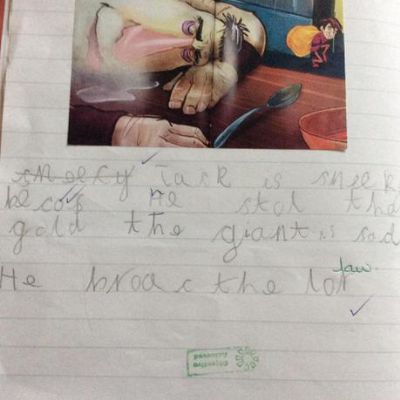 sneeky Jack is sneek
becos He stol tha
gold the giant is sad
He broac the lor
law.
Objective
Achieved